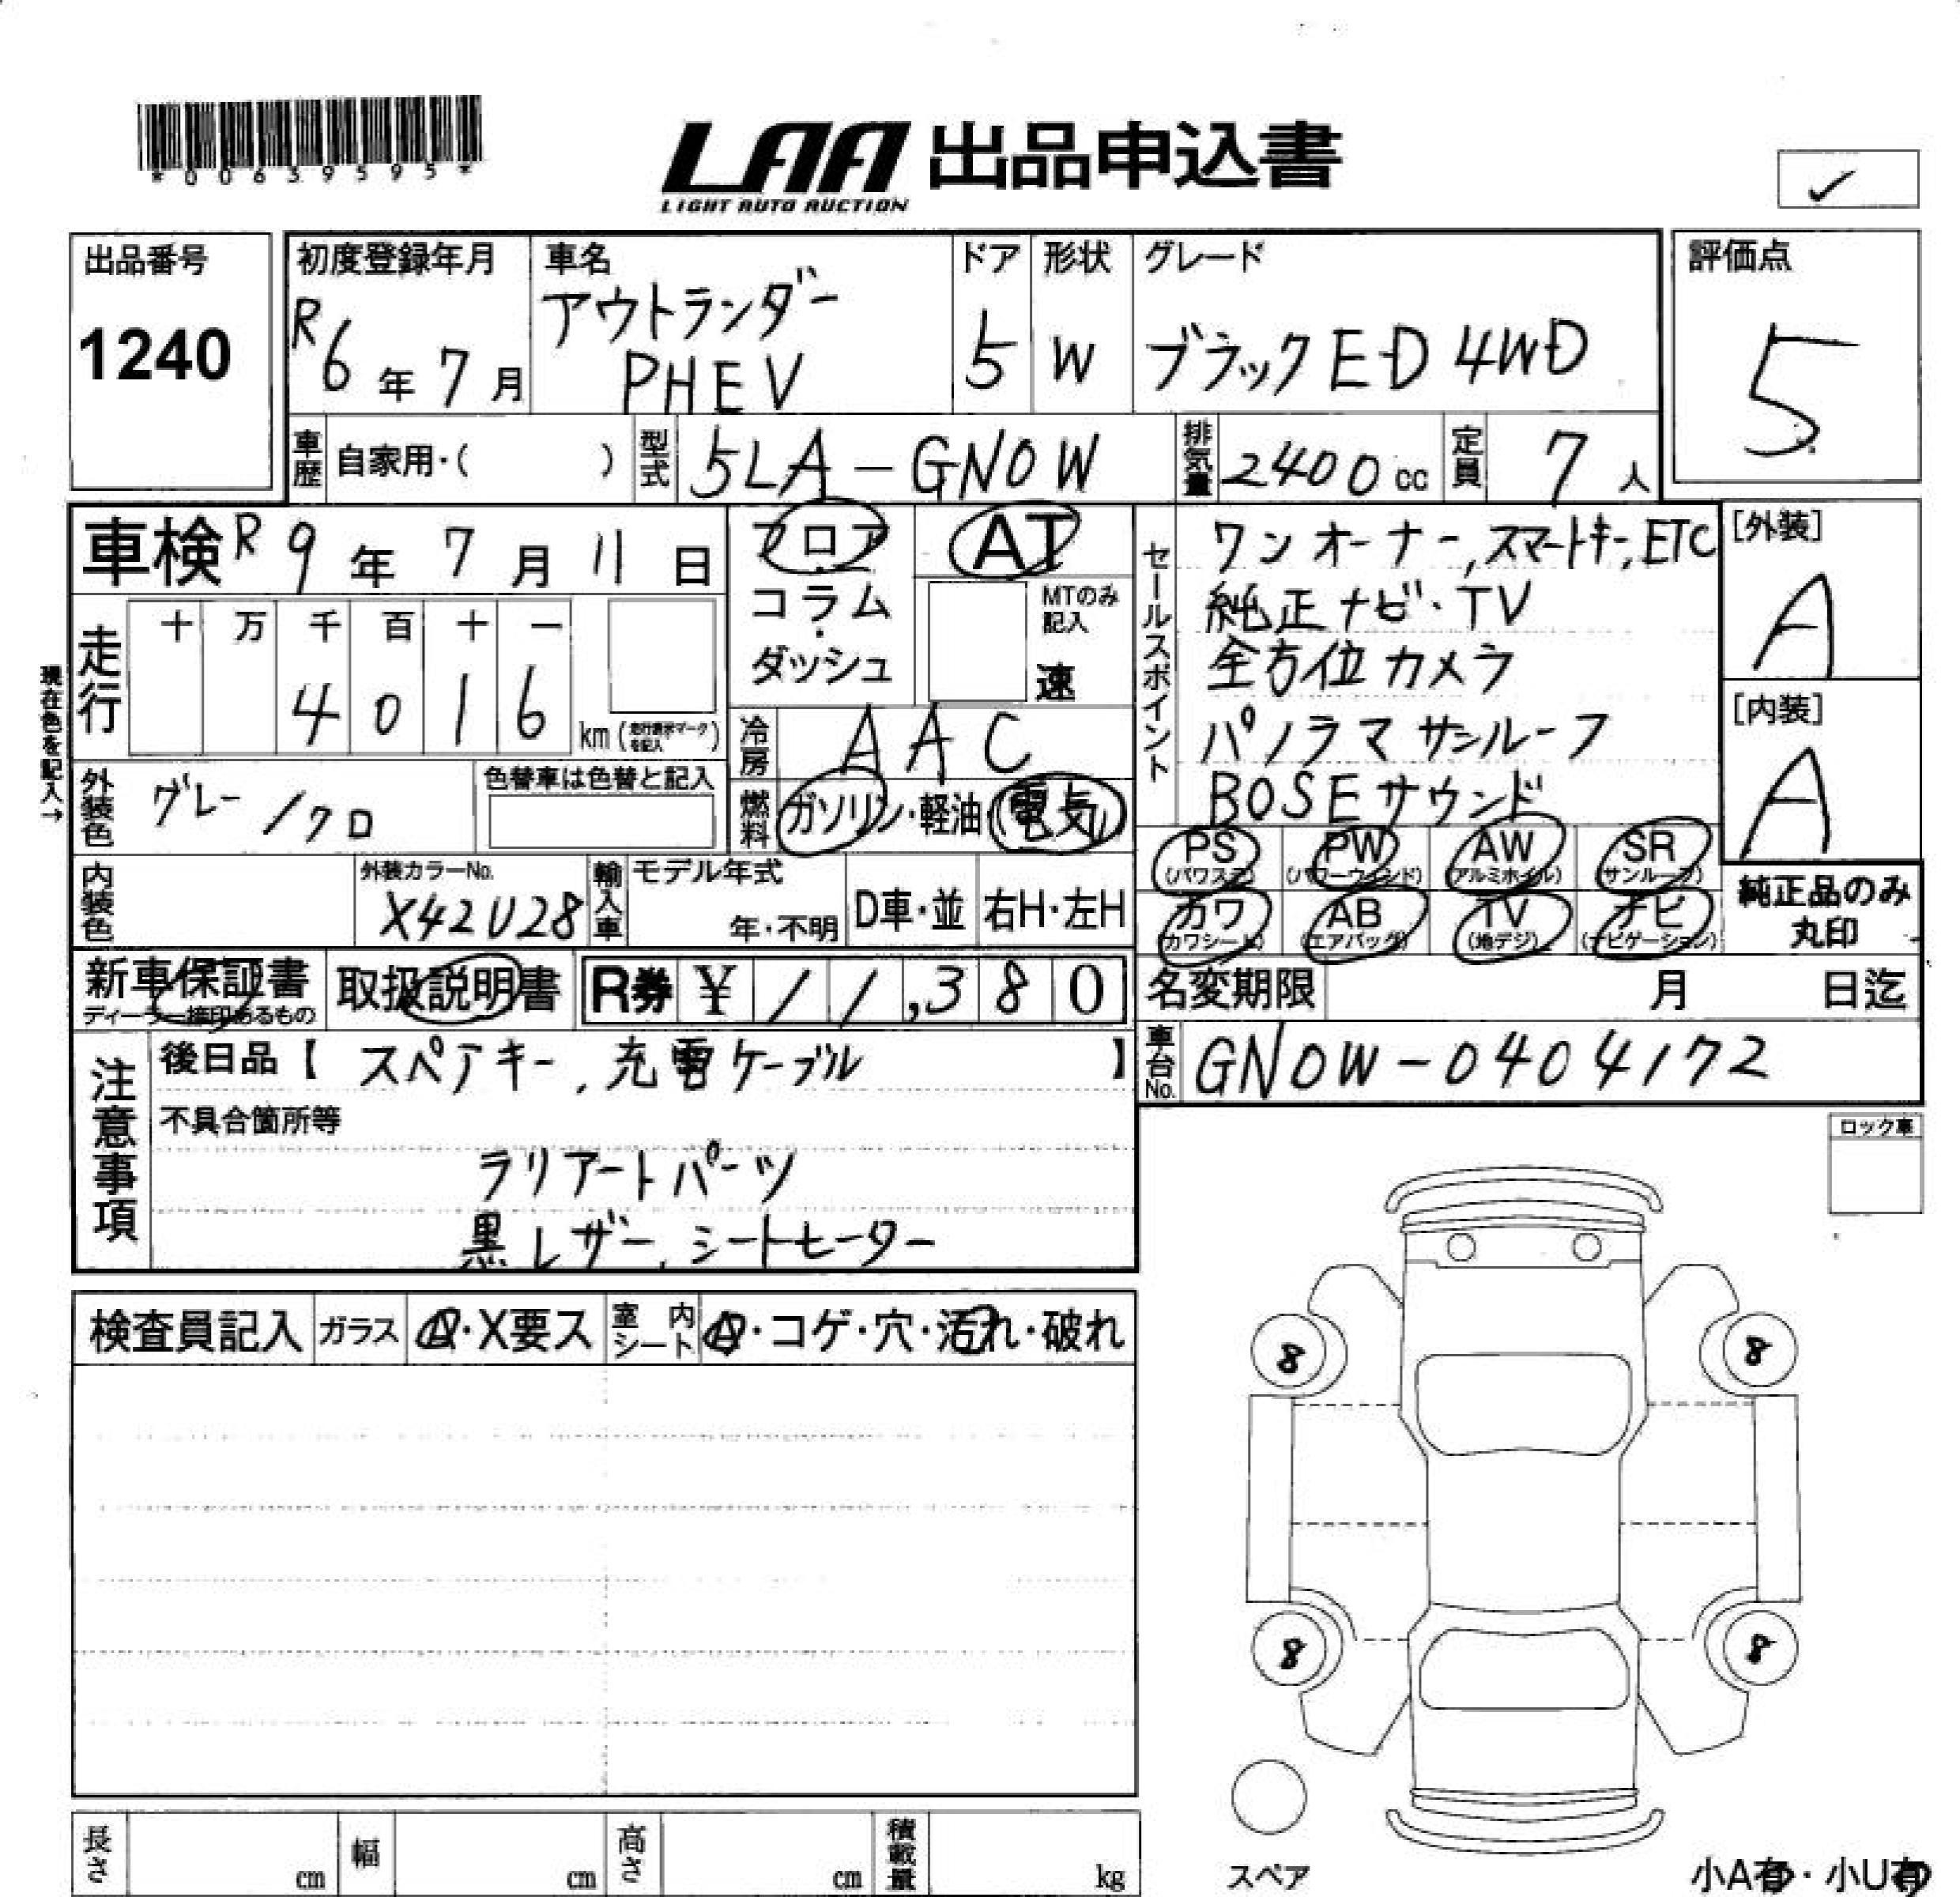 *00639595*
LAA 出品申込書
LIGHT AUTO AUCTION
出品番号
1240
初度登録年月
R6年7月
車名
アウトランダー
PHEV
ドア
5
形状
W
グレード
ブラックED 4WD
評価点
5
車歴 自家用・( )
型式 5LA-GN0W
排気量 2400cc
定員 7人
車検 R9年7月11日
フロア
コラム
・
ダッシュ
AT
MTのみ
記入
速
セールスポイント
ワンオーナー,スマートキー,ETC
純正ナビ・TV
全方位カメラ
パノラマサンルーフ
BOSEサウンド
[外装]
A
[内装]
A
現在色を記入→
走行
十 万 千 百 十 一
4 0 1 6 km(走行表示マークを記入)
冷房 AAC
外装色 グレー/クロ
色替車は色替と記入
燃料 ガソリン・軽油・電気
PS (パワステ)
PW (パワーウィンド)
AW (アルミホイル)
SR (サンルーフ)
カワ (カワシート)
AB (エアバッグ)
TV (地デジ)
ナビ (ナビゲーション)
純正品のみ
丸印
内装色
外装カラーNo.
X42U28
輸入車
モデル年式
年・不明
D車・並
右H・左H
新車保証書
ディーラー捺印あるもの
取扱説明書
R券 ¥ 11,380
名変期限 月 日迄
車台No. GN0W-0404172
注意事項
後日品【 スペアキー,充電ケーブル 】
不具合箇所等
ラリアートパーツ
黒レザー,シートヒーター
ロック車
検査員記入 ガラス A・X要ス 室内シート A・コゲ・穴・汚れ・破れ
8 8
8 8
スペア
長さ cm 幅 cm 高さ cm 積載量 kg
小A有・小U有